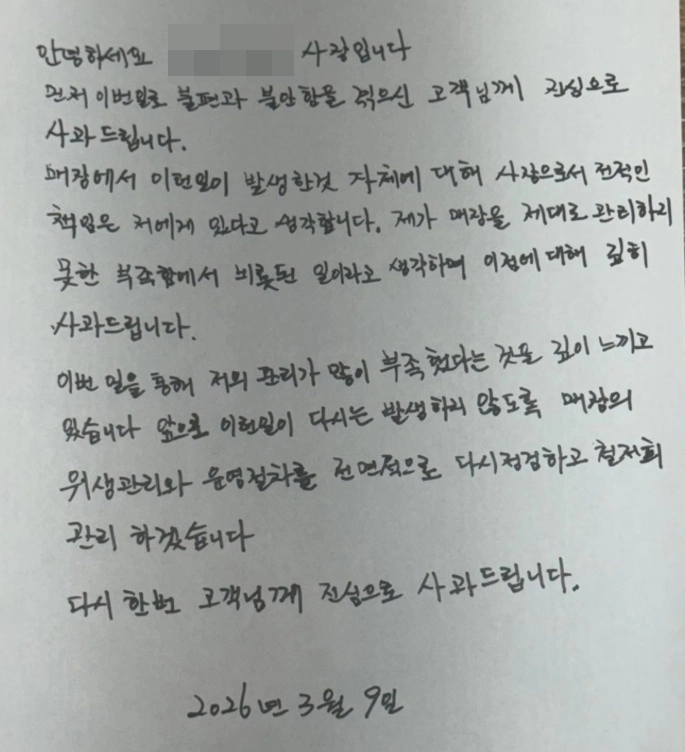 안녕하세요 사장입니다
먼저 이번일로 불편과 불안함을 겪으신 고객님께 진심으로
사과드립니다.
매장에서 이런일이 발생한것 자체에 대해 사장으로서 전적인
책임은 저에게 있다고 생각합니다. 제가 매장을 제대로 관리하지
못한 부족함에서 비롯된 일이라고 생각하며 이점에 대해 깊히
사과드립니다.
이번 일을 통해 저의 관리가 많이 부족했다는 것을 깊이 느끼고
있습니다 앞으로 이런일이 다시는 발생하지 않도록 매장의
위생관리와 운영절차를 전면적으로 다시점검하고 철저히
관리 하겠습니다
다시 한번 고객님께 진심으로 사과드립니다.
2026년 3월 9일